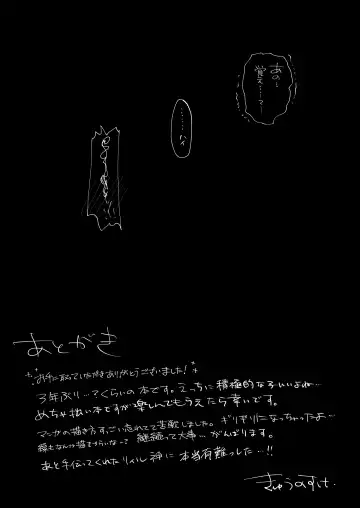 あの…
覚え……マ…
……ハイ
あとがき
お手に取っていただきありがとうございました！
3年ぶり…？くらいの本です。えっちに積極的な子いいよね…
めちゃ拙い本ですが楽しんでもらえたら幸いです。
マンガの描き方すっごい忘れてて苦戦しました。ギリギリになっちゃったよ…
継続って大事…がんばります。
あと手伝ってくれたリアル神に本当有難うした…!!
きゅうのすけ.